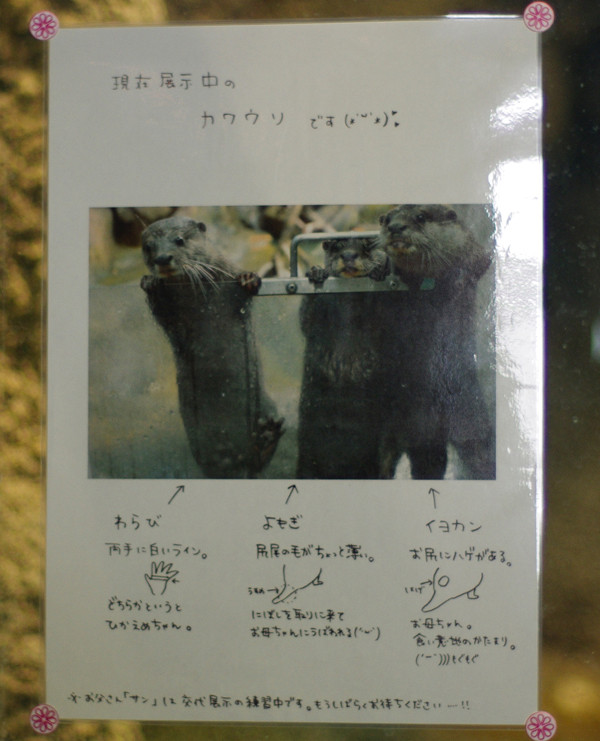 現在展示中の
カワウソ です(*´ω`*)
わらび
両手に白いライン。
どちらかというと
ひかえめちゃん。
よもぎ
尻尾の毛がちょっと薄い。
うすめ→
にぼしを取りに来て
お母ちゃんにうばわれる(´ω`)
イヨカン
お尻にハゲがある。
ハゲ→
お母ちゃん。
食い意地のかたまり。
(´～`)))もぐもぐ
※お父さん「サン」は交代展示の練習中です。もうしばらくお待ちくださいー!!